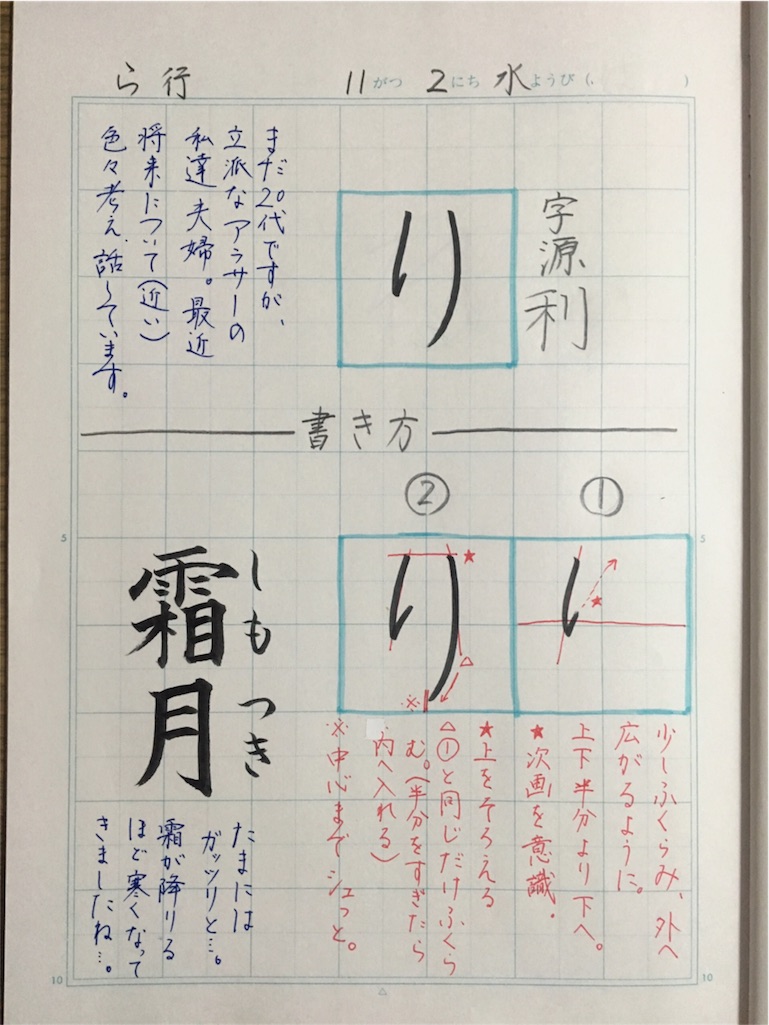 ら行 11がつ 2にち 水ようび( )
字源
利
り
まだ20代ですが、
立派なアラサーの
私達夫婦。最近
将来について(近い)
色々考え、話しています。
書き方
①
②
少しふくらみ、外へ
広がるように。
上下半分より下へ。
★次画を意識。
★上をそろえる
△①と同じだけふくら
む。(半分をすぎたら
内へ入れる)
※中心までシュっと。
★
★
△
※
り
しも
つき
霜月
たまには
ガッツリと…。
霜が降りる
ほど寒くなって
きましたね…。
5
5
10
△
10